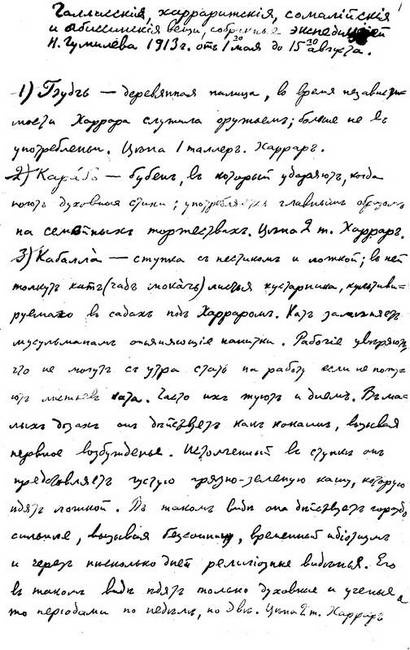 Галласскія, харраритскія, сомалійскія
и абиссинскія вещи, собранныя экспедиціей
Н. Гумилева 1913 г. отъ 1го мая до 15го августа.
1
1) Будъ — деревянная палица, во время независи-
мости Харрара служила оружіемъ; больше не въ
употребленіи. Цѣна 1 таллеръ. Харраръ.
2) — бубенъ, въ который ударяютъ, когда
поютъ духовные стихи; употребляется главнымъ образомъ
на семейныхъ торжествахъ. Цѣна 2 т. Харраръ.
3) Кабалла̀ — ступка съ пестикомъ и ложкой; въ ней
толкутъ катъ листья кустарника, культиви-
руемаго въ садахъ подъ Харраромъ. Катъ замѣняетъ
мусульманамъ опьяняющіе напитки. Рабочіе увѣряютъ,
что не могутъ съ утра стать на работу если не пожу-
ютъ листьевъ ката. Часто ихъ жуютъ и днемъ. Въ ма-
лыхъ дозахъ онъ дѣйствуетъ какъ кокаинъ, вызывая
нервное возбужденье. Истолченный въ ступкѣ онъ
представляетъ густую грязно-зеленую кашу, которую
ѣдятъ ложкой. Въ такомъ видѣ она дѣйствуетъ гораздо
сильнѣе, вызывая безсонницу, временный идіотизмъ
и черезъ нѣсколько дней религіозныя видѣнья. Его
въ такомъ видѣ ѣдятъ только духовные и ученые и
то періодами по недѣлѣ, по двѣ. Цѣна 2 т. Харраръ